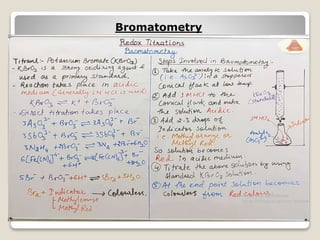 Bromatometry
Redox Titrations
Bromatometry
Titrant - Potassium Bromate (KBrO3)
- KBrO3 is a strong oxidising agent &
used as a primary standard.
- Reaction takes place in acidic
medium (Generally 1M HCl is used)
KBrO3 ⇌ K+ + BrO3-
- Direct titration takes place
3SbO33- + BrO3- ⇌ 3SbO43- + Br-
5Br- + BrO3- + 6H+ → 3Br2 + 3H2O
Br2 + Indicator → Colourless
Methyl orange
Methyl Red
Steps Involved in Bromatometry
① Take the analyte solution
in a stoppered
conical flask
② Add 1MHCl to the
conical flask and make
the solution Acidic.
③ Add 2-3 drops of
Indicator solution
i.e. Methyl orange or
Methyl Red
So solution becomes
Red in acidic medium
④ Titrate the above solution by using
standard KBrO3 solution
⑤ At the end point solution becomes
Colourless from Red colour.
KBrO3
(standard)
1MHCl
Analyte
Indicator